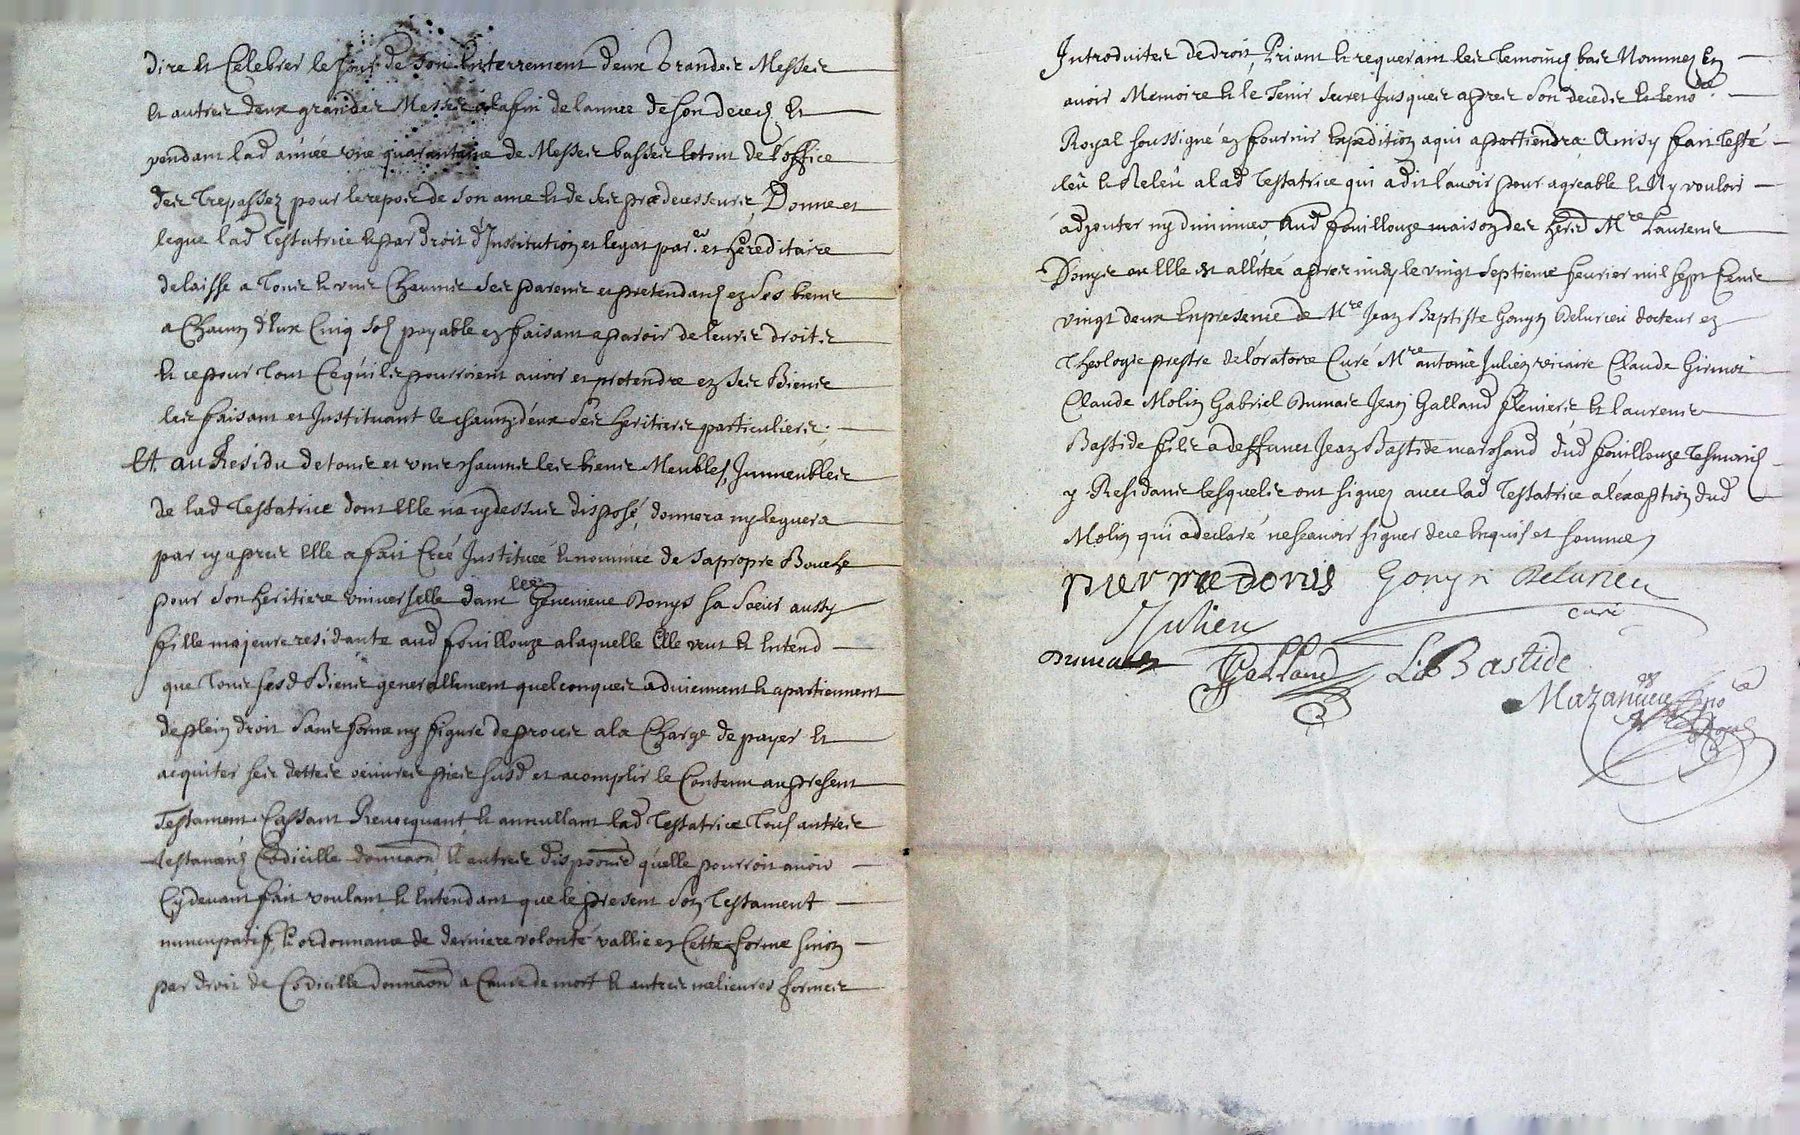 dire et Celebrer le Jour de Son Enterrement deux Grandes Messes
et autres deux grandes Messes a la fin de lannee de Son deces Et
pendant lad année une quarantaine de Messes basses le tout de L'office
des Trepassez pour le repos de Son ame et de Ses prædecesseurs, Donne et
legue lad Testatrice et par droit d'Institution et legat par.er et hereditaire
delaisse a Tous et uns Chacuns Ses parens et pretendans es Ses biens
a Chacun d'Eux Cinq Sols payable en faisant aparoir de leurs droits
Et ce pour Tout Ce qu'ils pourroient avoir et pretendre es Ses Biens
les faisant et Instituant Et chacun d'eux Ses heritiers particuliers;
Et au Residu de tous et uns chacuns les biens Meubles, Immeubles
de lad Testatrice dont Elle na cydessus disposé, donnera ny leguera
par cy apres Elle a fait Creé Instituée et nommée de Sa propre Bouche
pour Son heritiere universelle dam.lle Genevieve Donys Sa Soeur aussy
fille majeure residante aud fouillouze a laquelle Elle veut Et Entend
que Tous Sesd Biens generallement quelconques adviennent et apartiennent
de plein droit Sans forme ny figure de proces a la Charge de payer Et
acquiter Ses dettes oeuvres pies Susd et acomplir le Contenu au present
Testament. Cassant Revocquant et annullant lad Testatrice Tous autres
testamens Codicille donnaon et autres dispoones qu'elle pourroit avoir
Cy devant fait voulant et Entendant que le present Son Testament
nuncupatif, et ordonnance de derniere volonté vallie en Cette forme Sinon
par droit de Codicille donnaon a Cause de mort et autres melieures formes
Introduites de droit, Priant et requerant les Temoins bas Nommes En
avoir Memoire et le Tenir Secret Jusques apres Son deceds et le no.re
Royal Soussigné en fournir Expedition a qui apartiendra Ainsy fait Testé
leu et Releu a lad Testatrice qui a dit l'avoir pour agreable et N'y vouloir
adjouter ny diminuer, Aud fouillouze maison des herd M.re Laurens
Donys ou Elle Est allitée apres midy le vingt Septieme fevrier mil Sept Cens
vingt deux En presence de M.re Jean Baptiste Gonyn Delurieu docteur en
Theologie prestre de l'oratoire Curé M.re antoine Julien vicaire Claude Girinot
Claude Molin Gabriel Dumais Jean Galland et Laurens
Bastide fils a deffunct Jean Bastide marchand dud fouillouze Tesmoins
y Residans lesquels ont Signez avec lad Testatrice a l'exception dud
Molin qui a declaré ne Scavoir Signer de ce Enquis et Sommes
pierre donis Gonyn Delurieu
curé
Julien
Dumais Galland L Bastide
Mazanieu no.re
Royal